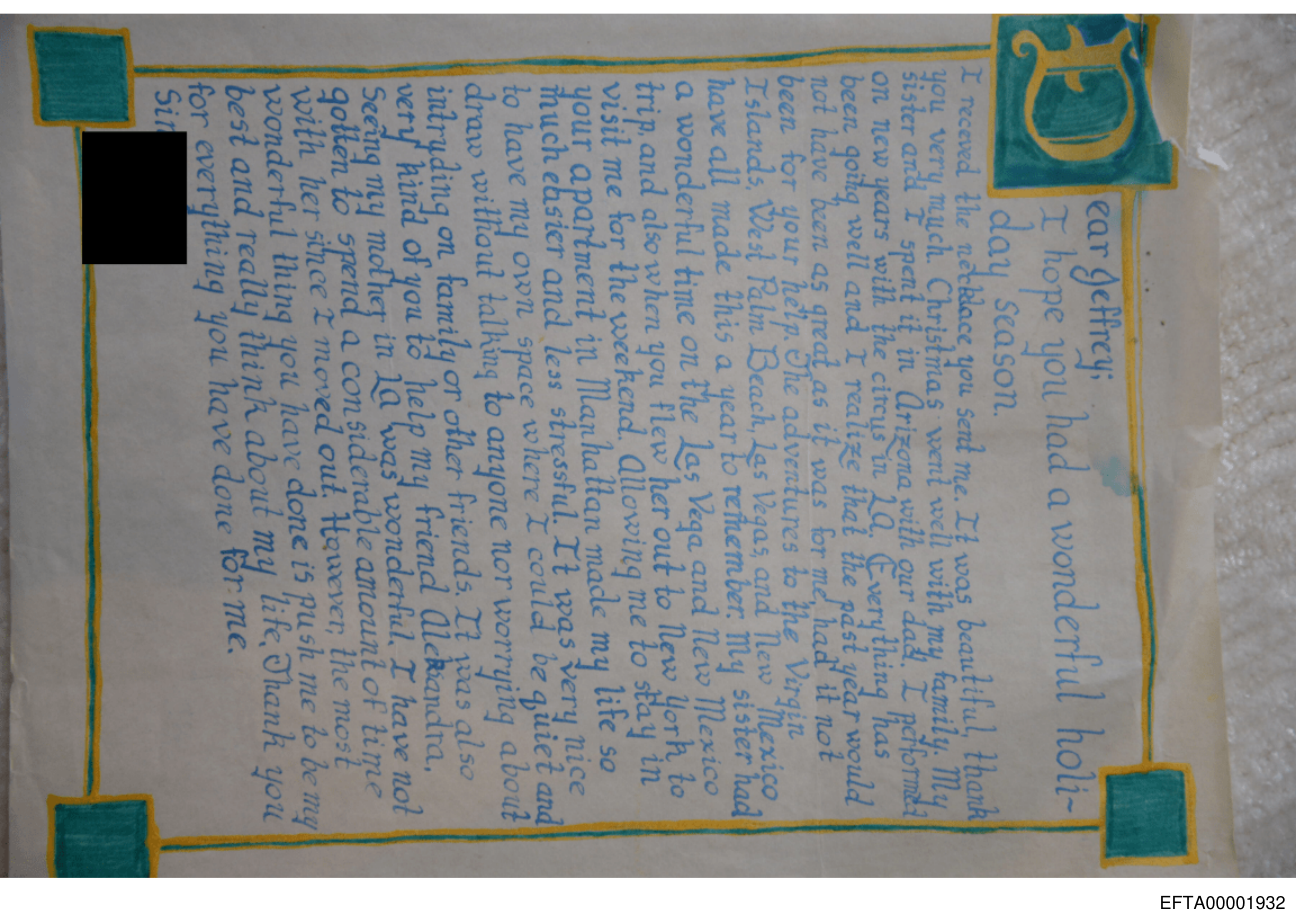 Dear Jeffrey;
I hope you had a wonderful holi-
day season.
I received the necklace you sent me. It was beautiful, thank
you very much. Christmas went well with my family. My
sister and I spent it in Arizona with our dad. I performed
on new years with the circus in LA. Everything has
been going well and I realize that the past year would
not have been as great as it was for me, had it not
been for your help. The adventures to the Virgin
Islands, West Palm Beach, Las Vegas, and New Mexico
have all made this a year to remember. My sister had
a wonderful time on the Las Vega and New Mexico
trip, and also when you flew her out to New York to
visit me for the weekend. Allowing me to stay in
your apartment in Manhattan made my life so
much easier and less stressful. It was very nice
to have my own space where I could be quiet and
draw without talking to anyone nor worrying about
intruding on family or other friends. It was also
very kind of you to help my friend Aleksandra.
Seeing my mother in LA was wonderful. I have not
gotten to spend a considerable amount of time
with her since I moved out. However, the most
wonderful thing you have done is push me to be my
best and really think about my life. Thank you
for everything you have done for me.
Sin
EFTA00001932